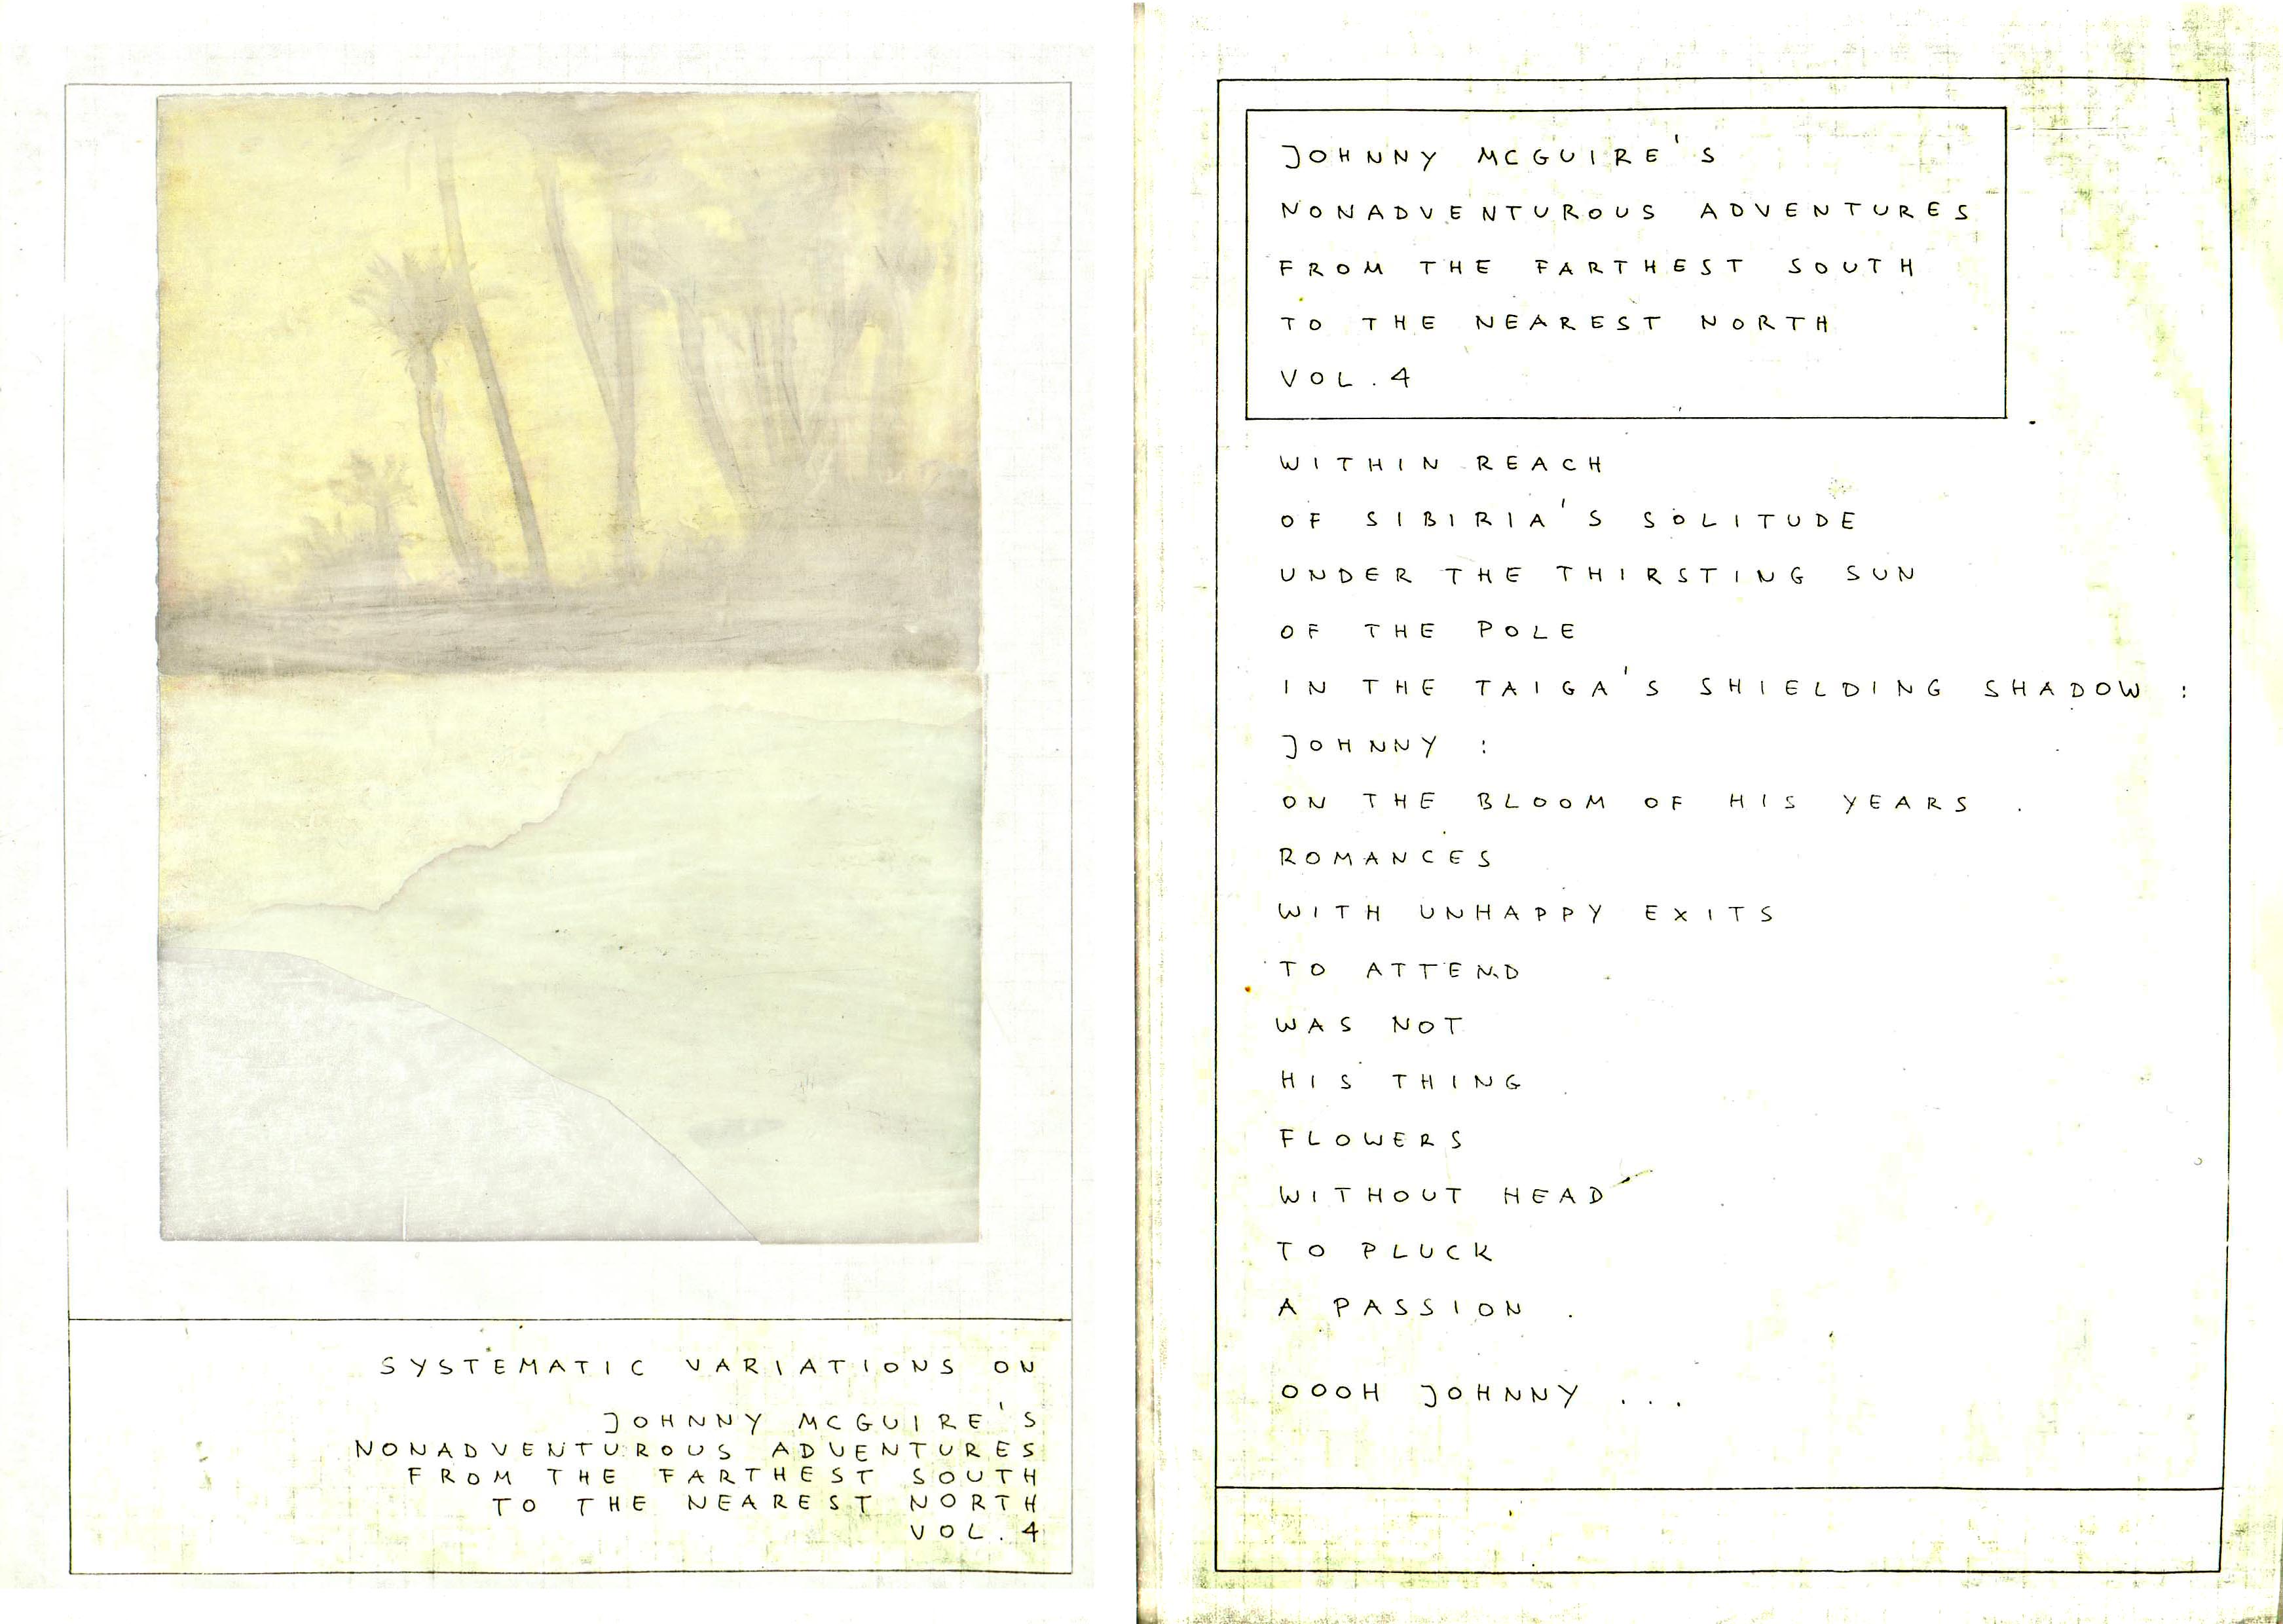 SYSTEMATIC VARIATIONS ON
JOHNNY MCGUIRE'S
NONADVENTUROUS ADVENTURES
FROM THE FARTHEST SOUTH
TO THE NEAREST NORTH
VOL.4
JOHNNY MCGUIRE'S
NONADVENTUROUS ADVENTURES
FROM THE FARTHEST SOUTH
TO THE NEAREST NORTH
VOL.4
WITHIN REACH
OF SIBIRIA'S SOLITUDE
UNDER THE THIRSTING SUN
OF THE POLE
IN THE TAIGA'S SHIELDING SHADOW :
JOHNNY :
ON THE BLOOM OF HIS YEARS .
ROMANCES
WITH UNHAPPY EXITS
TO ATTEND
WAS NOT
HIS THING
FLOWERS
WITHOUT HEAD
TO PLUCK
A PASSION .
OOOH JOHNNY ...